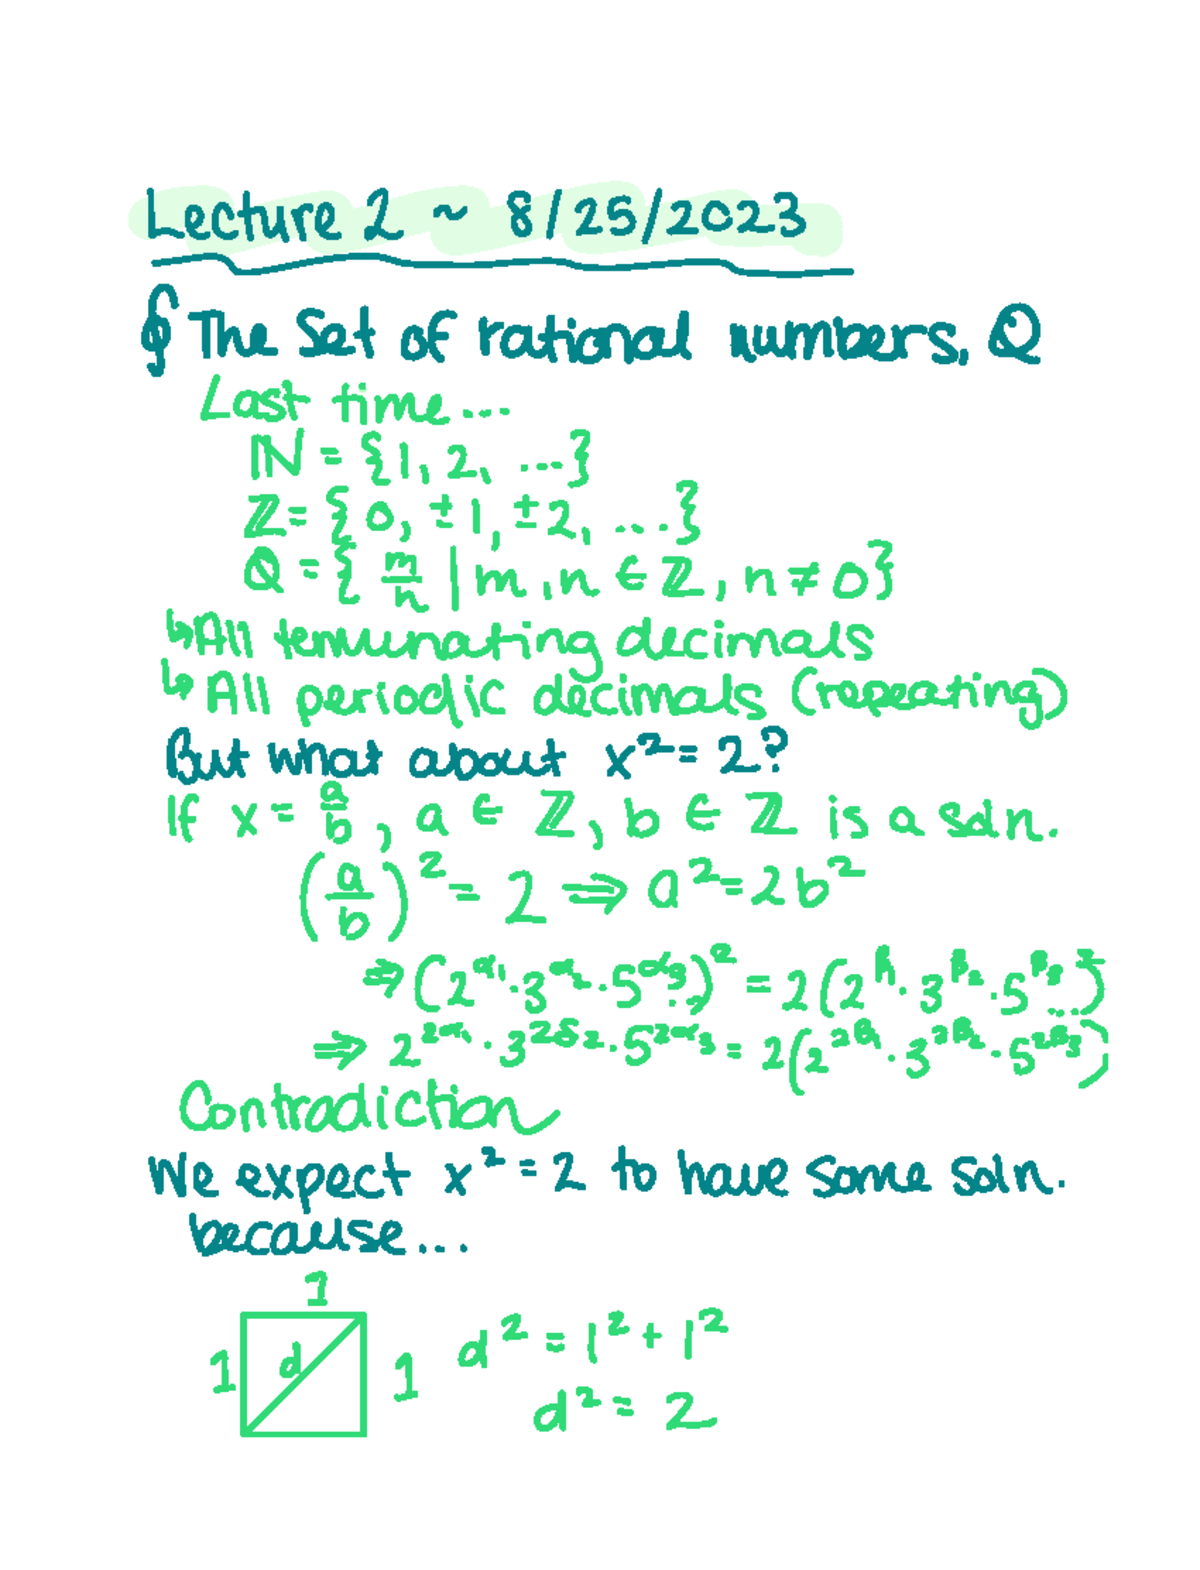 Lecture 2 ~ 8/25/2023
§ The Set of rational numbers, ℚ
Last time...
ℕ = {1, 2, ...}
ℤ = {0, ±1, ±2, ...}
ℚ = { m/n | m, n ∈ ℤ, n ≠ 0}
↳ All terminating decimals
↳ All periodic decimals (repeating)
But what about x² = 2?
If x = a/b, a ∈ ℤ, b ∈ ℤ is a soln.
(a/b)² = 2 ⇒ a² = 2b²
⇒ (2^α₁ · 3^α₂ · 5^α₃ ...)² = 2(2^β₁ · 3^β₂ · 5^β₃ ...)²
⇒ 2^2α₁ · 3^2δ₂ · 5^2α₃ = 2(2^2β₁ · 3^2β₂ · 5^2β₃)
Contradiction
We expect x² = 2 to have some soln.
because...
1
1 d 1 d² = 1² + 1²
d² = 2